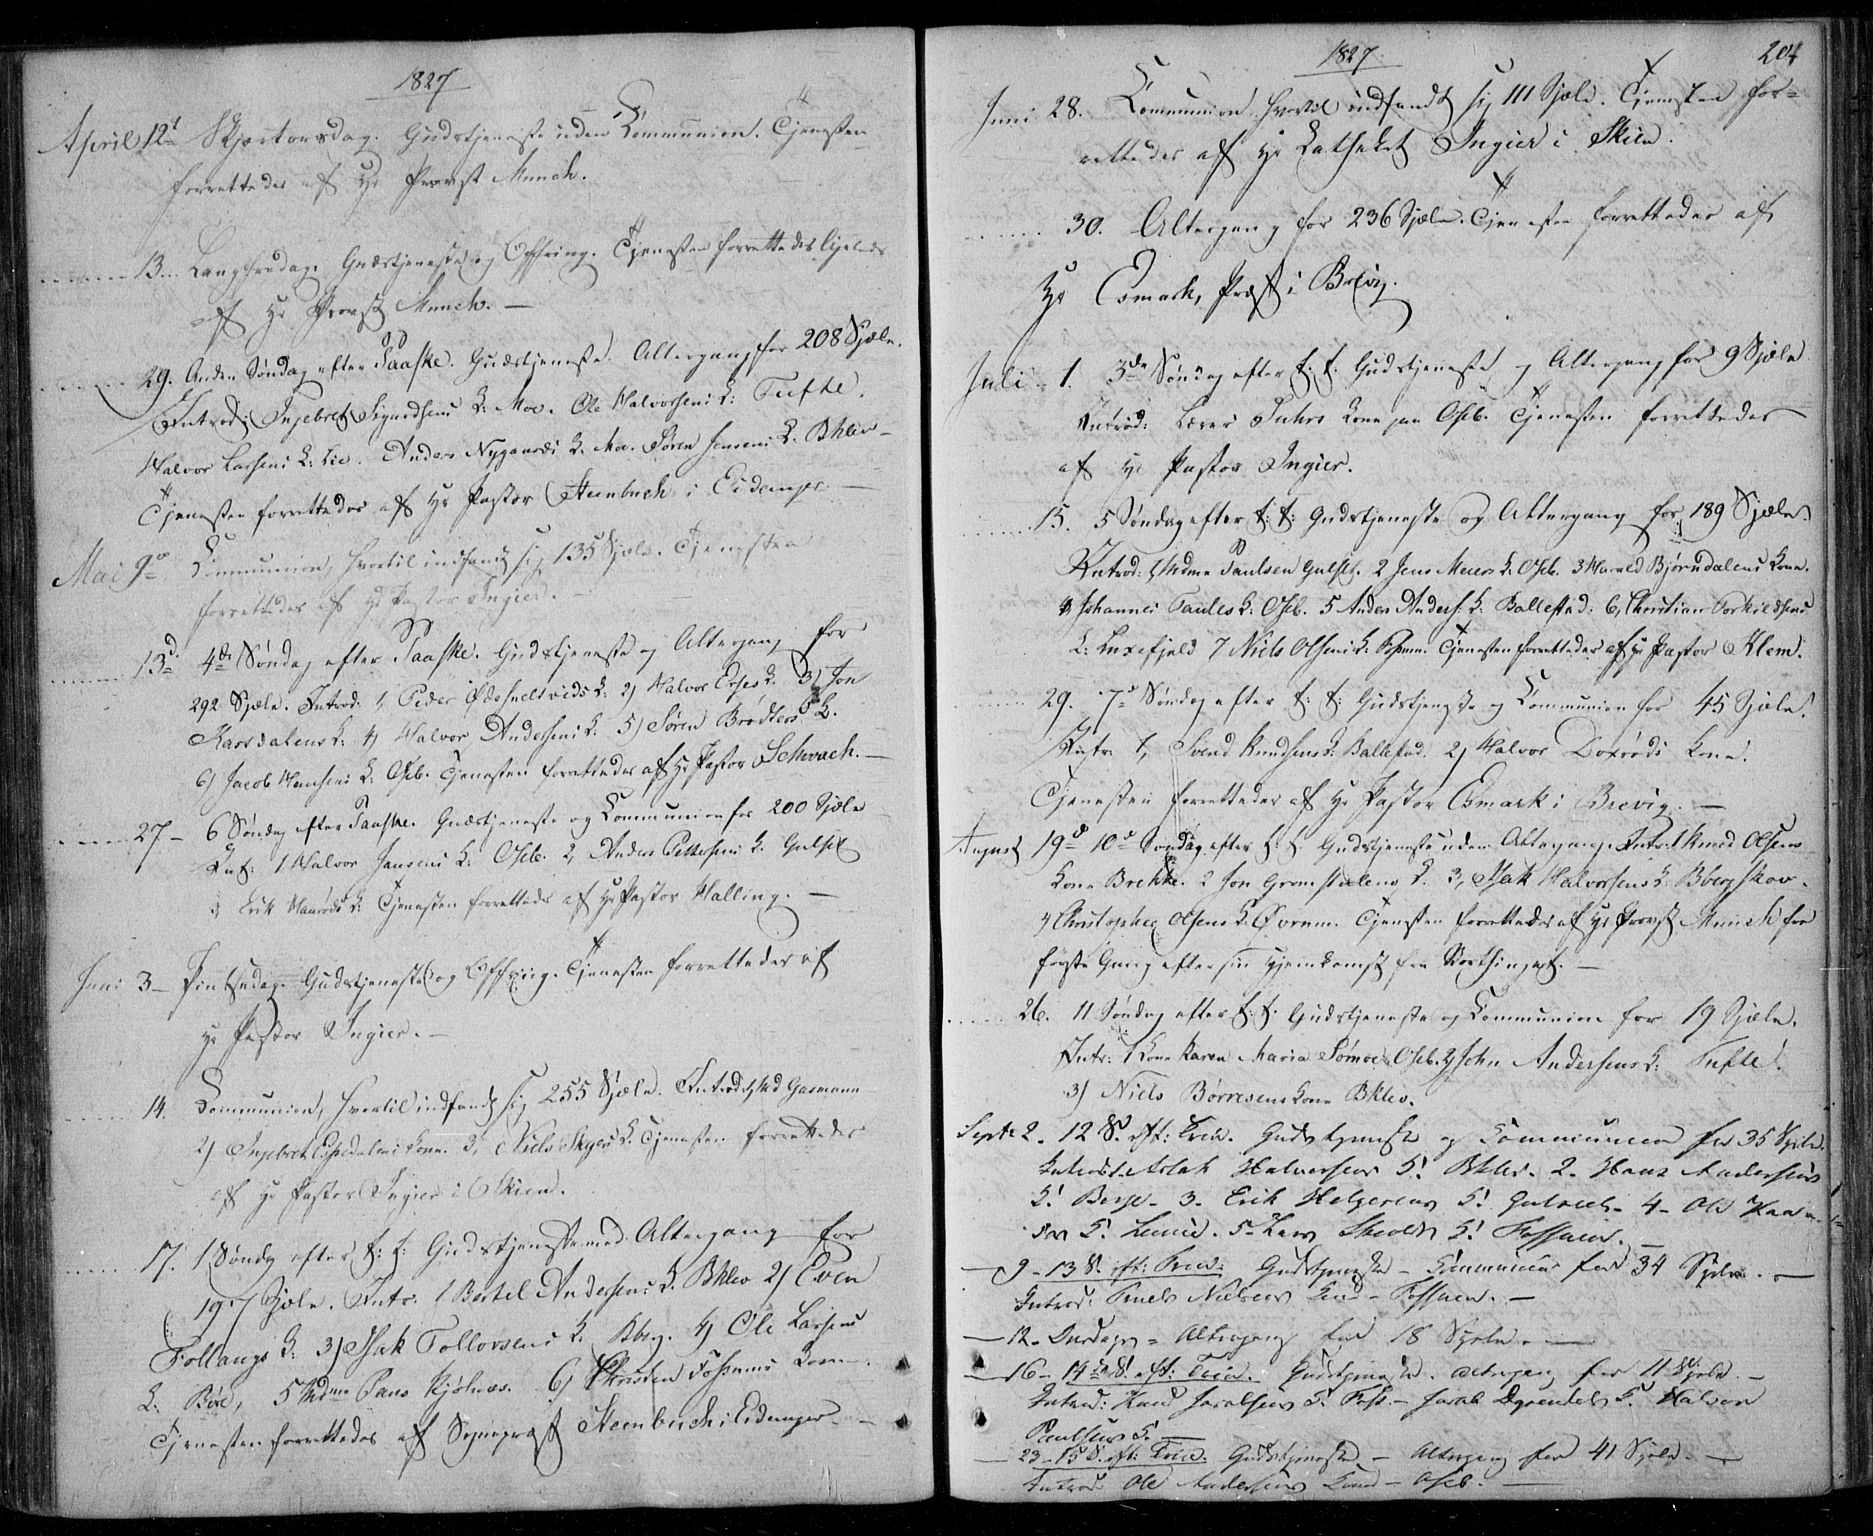 1827
April 12te Skjærtorsdag. Gudstjeneste uden Communion. Tjenesten
forrettedes af Hr Provst Munch.
13. Langfredag. Gudstjeneste og Offring. Tjenesten forrettedes ligeledes
af Hr Provst Munch. —
29. Anden Søndag efter Paaske. Gudstjeneste. Altergang for 208 Sjæle.
Introd: Ingebret Sigurdsens K: Moe. Ole Halvorsens K: Tufte.
Halvor Larsens K: Lie. Anders Nygaards K. Moe. Søren Jensens K. Bklev —
Tjenesten forrettedes af Hr Pastor Steenbuch i Eidanger. —
Mai 9de Communion, hvortil indfandt sig 135 Sjæle. Tjenesten
forrettedes af Hr Pastor Ingier. —
13de 4de Søndag efter Paaske. Gudstjeneste og Altergang for
292 Sjæle. Introd: 1) Peder K: 2) Halvor K. 3) Jon
K: 4) Halvor Andersens K: 5) Søren Brødlers K.
6) Jacob Hansens K. Oseb. Tjenesten forrettedes af Hr Pastor Schwach. —
27 — 6 Søndag efter Paaske. Gudstjeneste og Communion for 200 Sjæle
Int: 1 Halvor Jansens K. Oseb. 2, Anders Pettersens K. Gulset
3, Erik K: Tjenesten forrettedes af Hr Pastor Halling. —
Juni 3 — Pintsedag. Gudstjeneste og Offring. Tjenesten forrettedes af
Hr Pastor Ingier. —
14. Communion, hvortil indfandt sig 255 Sjæle. Introd: 1, Md Gasmann
2) Ingebret Kone. 3, Niels K. Tjenesten forrettedes
af Hr Pastor Ingier i Skien.
17. 1 Søndag efter t: f: Gudstjeneste med Altergang for
197 Sjæle. Intr. 1 Bertel Andersens K. Bklev 2) Even
Follaugs K: 3) Isak Tollovsens K. Kberg. 4) Ole Larsens
K. Böe, 5 Mdme Paus Kjølnæs. 6) Kone.
Tjenesten forrettedes af Sognepræst Steenbuch i Eidanger —
1827
204
Juni 28. Communion, hvortil indfandt sig 111 Sjæle. Tjenesten for-
rettedes af Hr Catheket Ingier i Skien.
30. Altergang for 236 Sjæle. Tjenesten forrettedes af
Hr Esmark, Præst i Brevig.
Juli 1. 3de Søndag efter t. f. Gudstjeneste og Altergang for 9 Sjæle
Introd: Lærer Kone paa Oseb. Tjenesten forrettedes
af Hr Pastor Ingier.
15. 5 Søndag efter t: f: Gudstjeneste og Altergang for 189 Sjæle.
Introd: 1, Mdme Paulsen Gulset. 2 Jens Meiers K. Oseb. 3 Harald Bjørndalens Kone.
4 Johannes K: Oseb. 5 Anders Anders: K. Ballestad: 6, Christian Torkildsens
K: Luxefjeld 7 Niels Olsens K. Tjenesten forrettedes af Hr Pastor Klem.
29. 7de Søndag efter t: f: Gudstjeneste og Communion for 45 Sjæle.
Intr: 1, Svend Knudsens K: Ballestad. 2) Halvor Kone.
Tjenesten forrettedes af Hr Pastor Esmark i Brevig. —
August 19de 10de Søndag efter t. f. Gudstjeneste uden Altergang. Introd: 1 Knud Olsens
Kone Brekke. 2 Jon Gromstulens K. 3, Isak Halvorsens K: Bbergskov.
4 Christopher Olsens K: Ørum. Tjenesten forrettedes af Hr Provst Munch for
første Gang efter sin Hjemkomst fra Storthinget. —
26. 11 Søndag efter t. f. Gudstjeneste og Communion for 19 Sjæle.
Intr: 1 Kone Karen Maria Oseb. 2, John Andersens K: Tufte.
3) Niels Børresens Kone Bklev.
Septr 2. 12 S. eft: Trin. Gudstjeneste og Communion for 35 Sjæle.
Introd: 1. Aslak Halvorsens K: Bklev. 2. Hans Andersens
K: Berge. 3. Erik Helgesens K: Gulset. 4. Ole
K: 5. K:
— 9 — 13 S. eft: Trin: Gudstjeneste — Communion for 34 Sjæle. —
Introd: Nielsens Kone — Fossum. —
— 12. Onsdags = Altergang for 18 Sjæle. —
— 16 — 14de S. eft: Trin. Gudstjeneste. Altergang for 11 Sjæle. —
Introd: Jacobsens K. — Jacob K. Halvor
Paulsens K. —
23 — 15 S. eft: Trin. Gudstjeneste — Altergang for 41 Sjæle. —
Introd: Ole Andersens Kone — Oseb. —